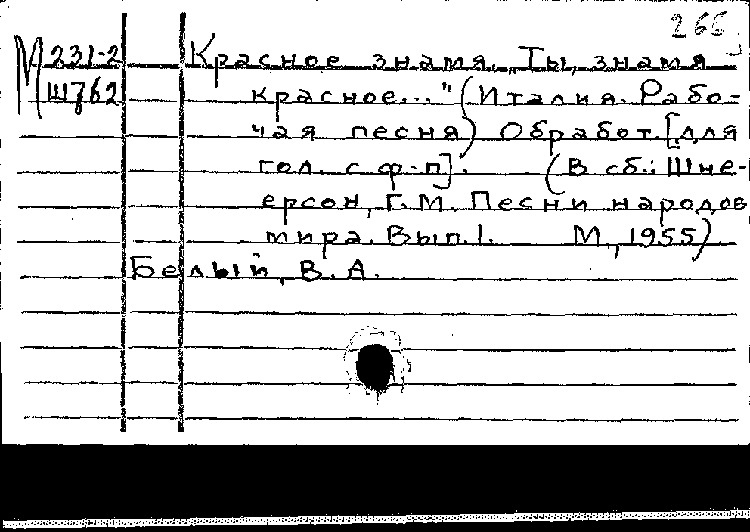 266
М 231-2 Красное знамя. „Ты, знамя
Ш762 красное..." (Италия. Рабо-
чая песня) Обработ. [для
гол. с ф-п]. (В сб.: Шне-
ерсон, Г.М. Песни народов
мира. Вып.1. М., 1955)
Белый, В.А.